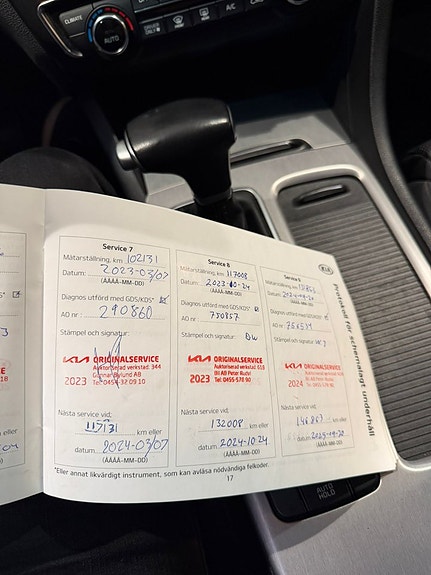 CLIMATE
AUTO
A/C
Service 7
Mätarställning, km 102131
Datum: 2023-03/07
(ÅÅÅÅ-MM-DD)
Diagnos utförd med GDS/KDS*
AO nr: 240860
Stämpel och signatur:
KIA ORIGINALSERVICE
Auktoriserad verkstad: 344
Gunnar Bylund AB
2023 Tel: 0454-32 09 10
Nästa service vid;
117131 km eller
datum 2024-03/07
(ÅÅÅÅ-MM-DD)
Service 8
Mätarställning, km 117008
Datum: 2023-10-24
(ÅÅÅÅ-MM-DD)
Diagnos utförd med GDS/KDS*
AO nr: 750857
Stämpel och signatur:
KIA ORIGINALSERVICE
Auktoriserad verkstad: 618
2023 Tel: 0455-578 90
Nästa service vid;
132008 km eller
datum 2024-10 24
(ÅÅÅÅ-MM-DD)
Mätarställning, km
Datum:
(ÅÅÅÅ-MM-DD)
Diagnos utförd med GDS/KDS*
AO nr:
Stämpel och signatur:
KIA ORIGINALSERVICE
2024
Nästa service vid;
km eller
datum
(ÅÅÅÅ-MM-DD)
*Eller annat likvärdigt instrument, som kan avläsa nödvändiga felkoder.
17
KIA
Protokoll för schemalagt underhåll
AUTO
HOLD